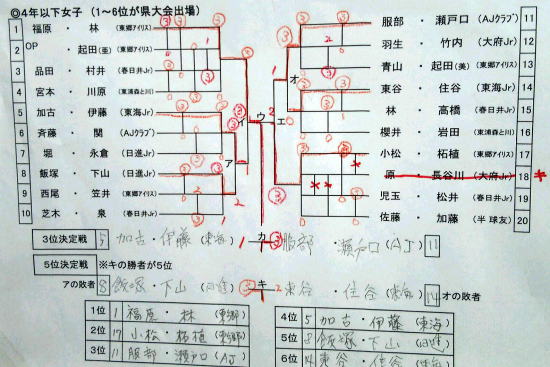 ◎4年以下女子 (1～6位が県大会出場)
1 福原 ・ 林 (東郷アイリス)
2 OP ・ 起田(亜) (東郷アイリス)
3 品田 ・ 村井 (春日井Jr)
4 宮本 ・ 川原 (東浦森と川)
5 加古 ・ 伊藤 (東海Jr)
6 斉藤 ・ 関 (AJクラブ)
7 堀 ・ 永倉 (日進Jr)
8 飯塚 ・ 下山 (日進Jr)
9 西尾 ・ 笠井 (東郷アイリス)
10 芝木 ・ 泉 (春日井Jr)
服部 ・ 瀬戸口 (AJクラブ) 11
羽生 ・ 竹内 (大府Jr) 12
青山 ・ 起田(美) (東郷アイリス) 13
東谷 ・ 住谷 (東海Jr) 14
林 ・ 高橋 (春日井Jr) 15
櫻井 ・ 岩田 (東浦森と川) 16
小松 ・ 柘植 (東郷アイリス) 17
原 ・ 長谷川 (大府Jr) 18 キ
児玉 ・ 松井 (春日井Jr) 19
佐藤 ・ 加藤 (半球友) 20
ア イ ウ エ オ
3位決定戦 5 加古・伊藤 (東海) 1 カ ③ 服部 ・ 瀬戸口 (AJ) 11
5位決定戦 ※キの勝者が5位
アの敗者 8 飯塚・下山 (日進) ③ キ 2 東谷 ・ 住谷 (東海) 14 オの敗者
1位 1 福原・林 (東郷)
2位 17 小松・柘植 (東郷)
3位 11 服部・瀬戸口 (AJ)
4位 5 加古・伊藤 (東海)
5位 8 飯塚・下山 (日進)
6位 14 東谷・住谷 (東海)